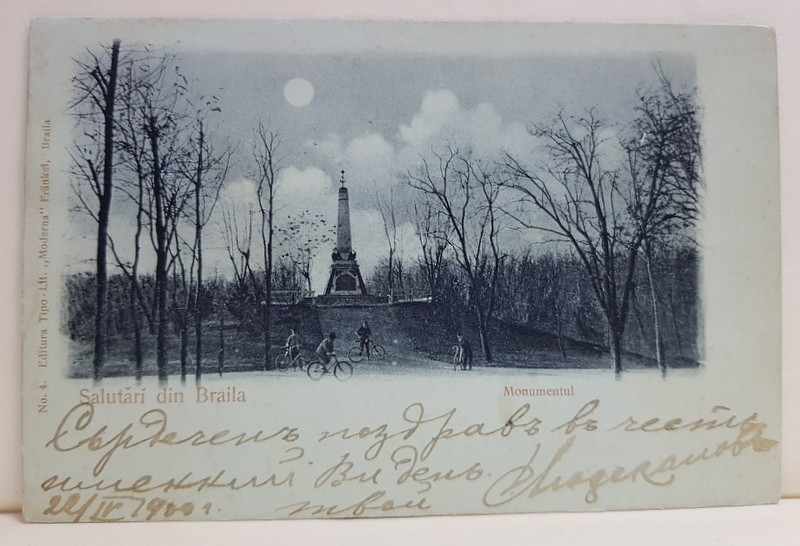 No. 4. Editura Tipo-Lit. „Moderna" Fränkel, Braila.
Salutări din Braila
Monumentul
Сърдеченъ поздравъ въ честь
именний Ви день.
22/IV 1900 г. твой